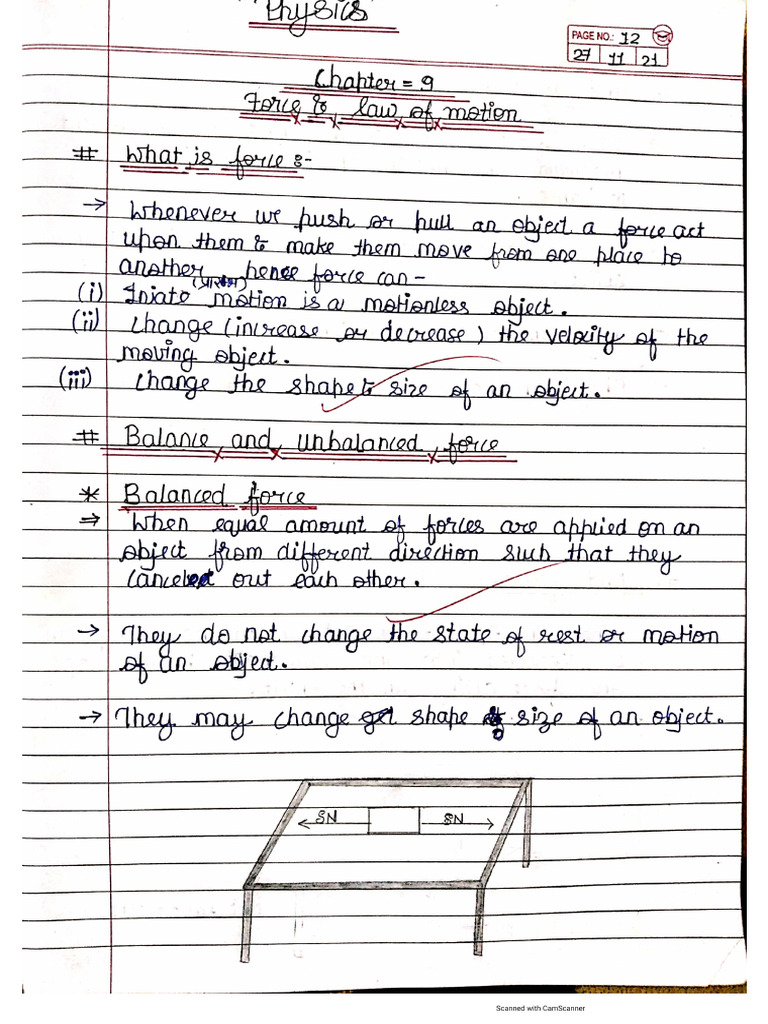 Physics
PAGE NO.: 12
27 11 21
Chapter = 9
Force & law of motion
# What is force :-
→ Whenever we push or pull an object a force act
upon them & make them move from one place to
another hence force can -
(i) Iniate motion is a motionless object.
(ii) Change (increase or decrease) the velocity of the
moving object.
(iii) Change the shape & size of an object.
# Balance and unbalanced force
* Balanced force
⇒ When equal amount of forces are applied on an
object from different direction such that they
cancel out each other.
→ They do not change the state of rest or motion
of an object.
→ They may change shape & size of an object.
5N 5N
Scanned with CamScanner